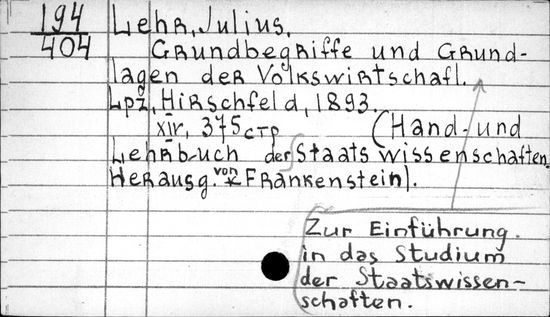 194
404
Lehr, Julius.
Grundbegriffe und Grund-
lagen der Volkswirtschaft.
Lpz, Hirschfeld, 1893.
XIV, 375 стр
(Hand- und
Lehrbuch der Staatswissenschaften.
Herausg. von K Frankenstein).
Zur Einführung
in das Studium
der Staatswissen-
schaften.